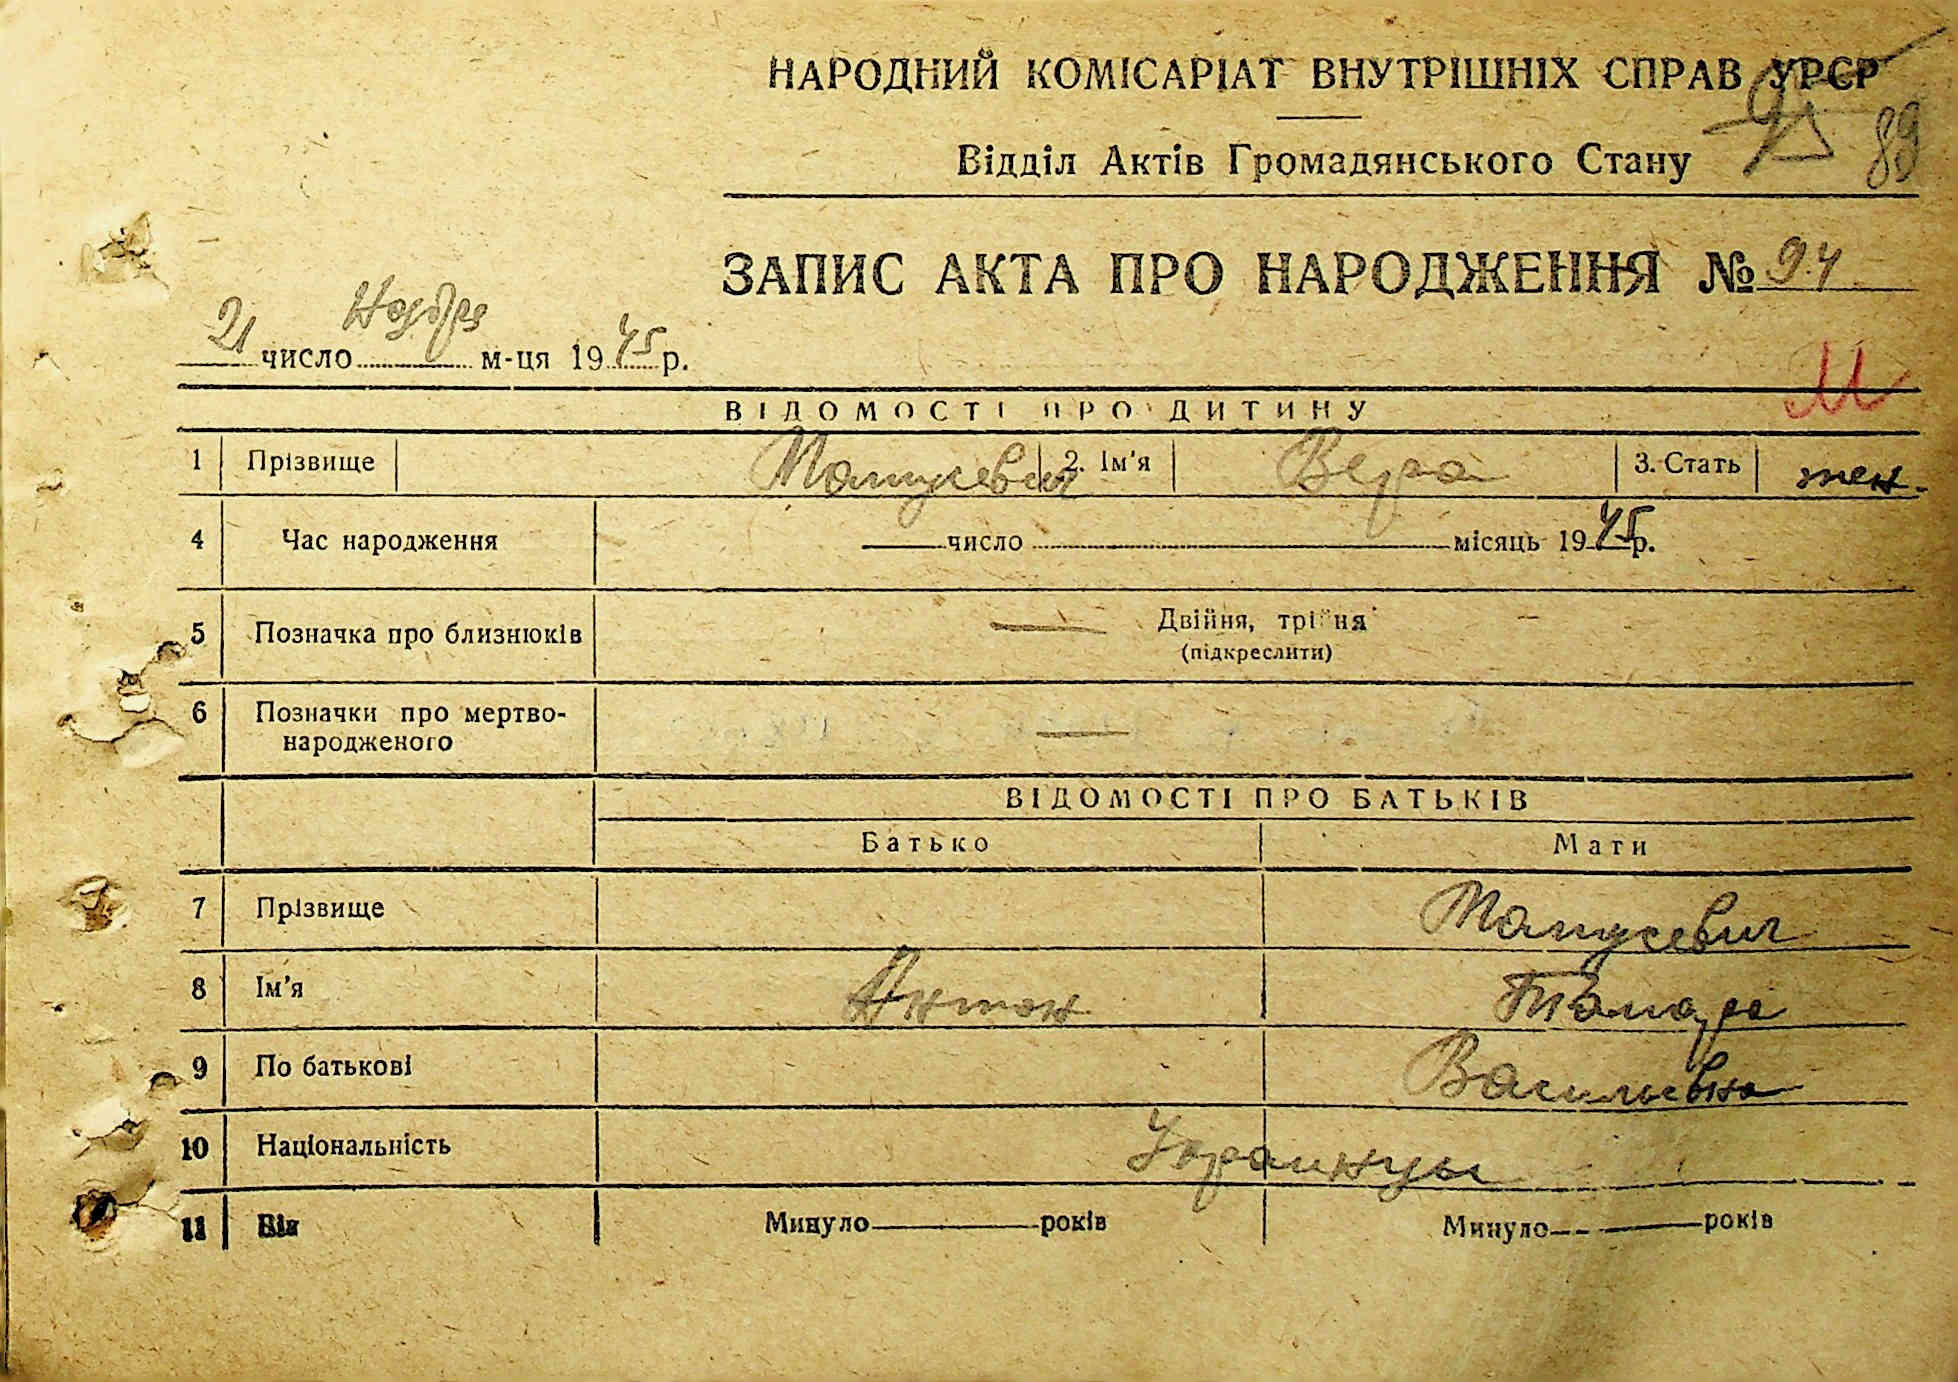 НАРОДНИЙ КОМІСАРІАТ ВНУТРІШНІХ СПРАВ УРСР
89
Відділ Актів Громадянського Стану
ЗАПИС АКТА ПРО НАРОДЖЕННЯ № 94
21 число Ноября м-ця 1945 р.
М
ВІДОМОСТІ ПРО ДИТИНУ
1 Прізвище Матусевич 2. Ім'я Вера 3. Стать жен.
4 Час народження число місяць 1945 р.
5 Позначка про близнюків — Двійня, трійня
(підкреслити)
6 Позначки про мертво-
народженого —
ВІДОМОСТІ ПРО БАТЬКІВ
Батько Мати
7 Прізвище Матусевич
8 Ім'я Антон Тамара
9 По батькові Васильевна
10 Національність Украинцы
11 Вік Минуло роков Минуло років